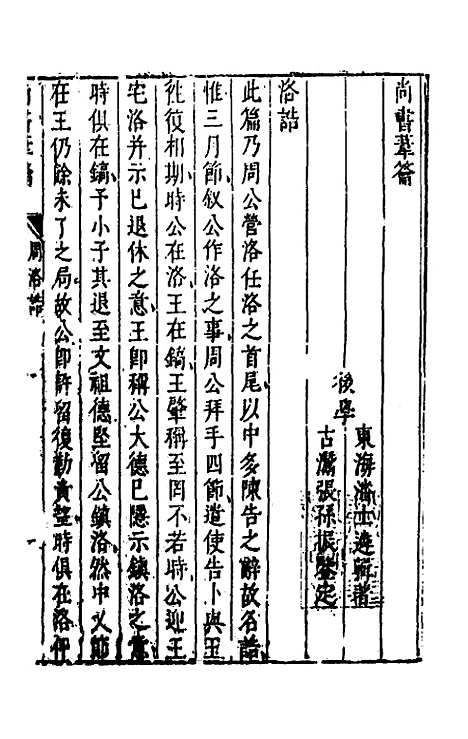 尚書葦籥
後學
東海潘士遴輯著
古瀛張孫振鑒定
洛誥
此篇乃周公營洛任洛之首尾以中多陳告之辭故名誥
惟三月節叙公作洛之事周公拜手四節遣使告卜與王
徃復相期時公在洛王在鎬王肇稱至罔不若時公迎王
宅洛并示已退休之意王卽稱公大德已隱示鎮洛之意
時俱在鎬予小子其退至文祖德堅留公鎮洛然中乂節
在王仍餘未了之局故公卽許留復勤責整時俱在洛伻
尚書葦籥
周洛誥
一